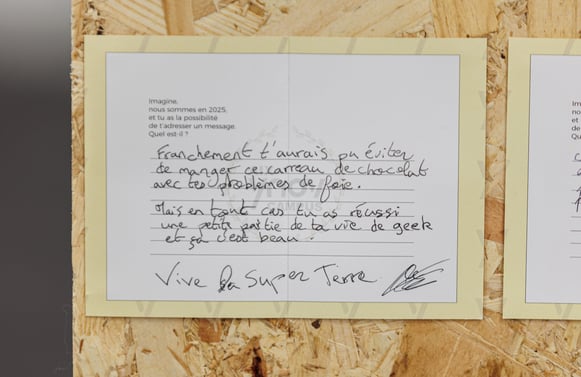 Imagine,
nous sommes en 2025,
et tu as la possibilité
de t'adresser un message.
Quel est-il ?
Franchement t'aurais pu éviter
de manger ce carreau de chocolat
avec tes problèmes de foie.
Mais en tout cas tu as réussi
une petite partie de ta vie de geek
et ça c'est beau.
Vive la Super Terre
CAMPUS